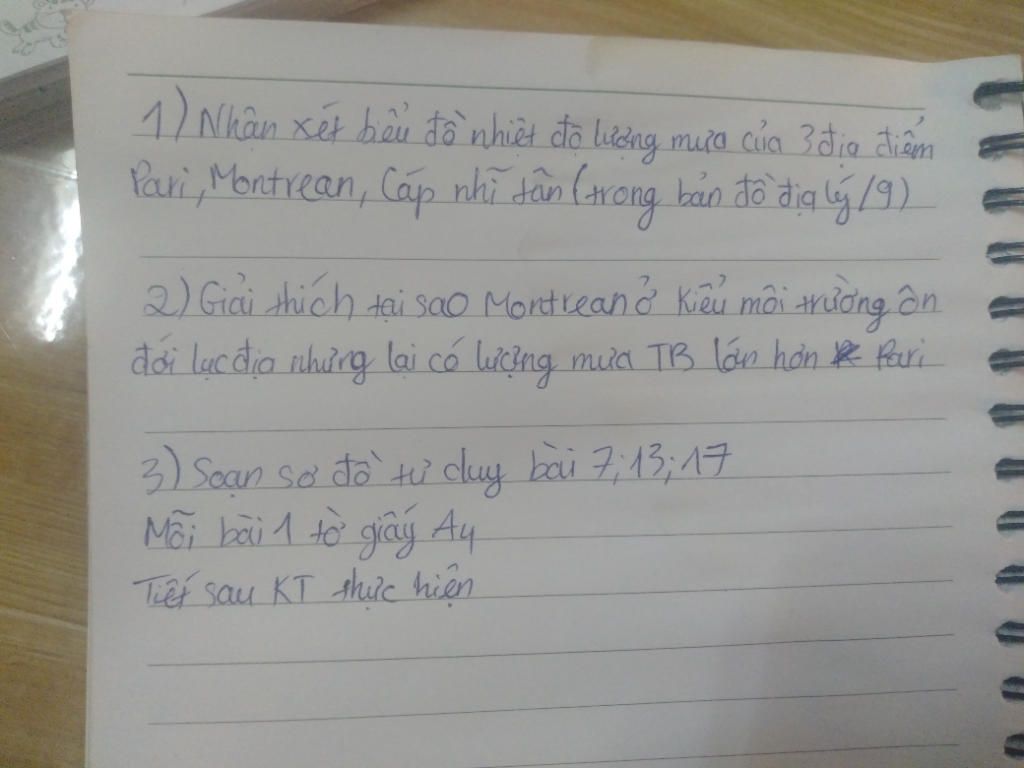 1) Nhận xét biểu đồ nhiệt độ lượng mưa của 3 địa điểm
Pari, Montrean, Cáp nhĩ tân (trong bản đồ địa lý /9)
2) Giải thích tại sao Montrean ở kiểu môi trường ôn
đới lục địa nhưng lại có lượng mưa TB lớn hơn Pari
3) Soạn sơ đồ tư duy bài 7; 13; 17
Mỗi bài 1 tờ giấy A4
Tiết sau KT thực hiện